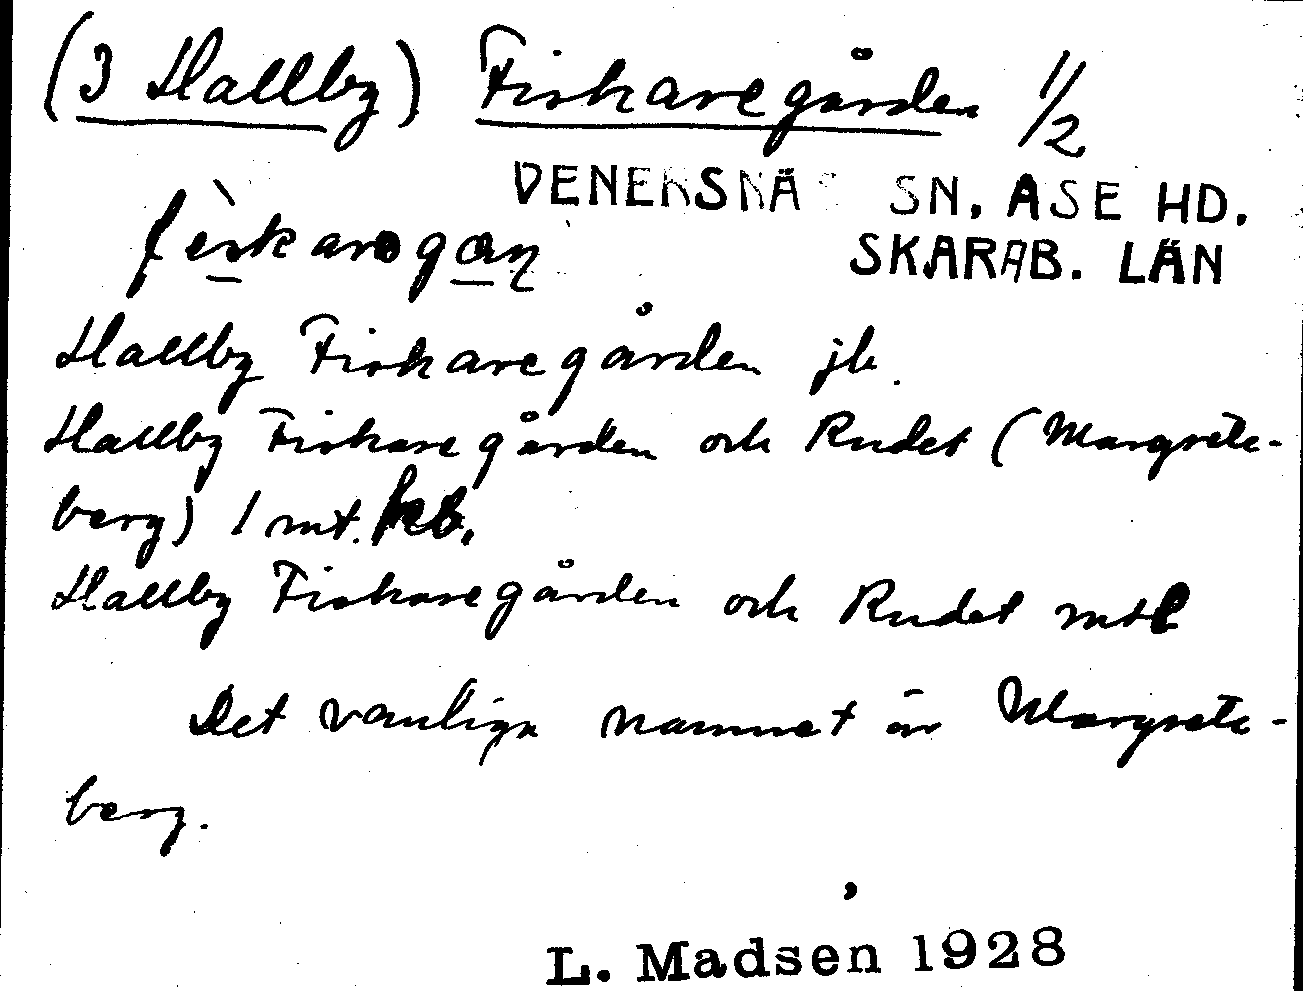 (3 Hallby) Fiskaregården 1/2
VENERSNÄS SN. ASE HD.
SKARAB. LÄN
Hallby Fiskaregården jb.
Hallby Fiskaregården och Rudet (Margrete-
berg) 1 mt. kb.
Hallby Fiskaregården och Rudet mtl
Det vanliga namnet är Margrete-
berg.
L. Madsen 1928